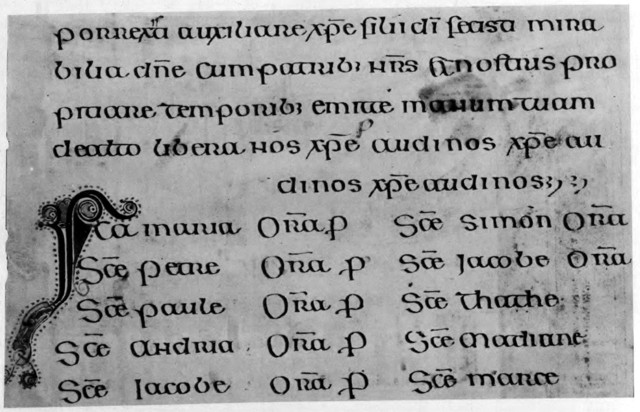 porrexti auxiliare xp̄e filii dī feasti mira
bilia dn̄e cum patrib; nr̄is &nostris pro
pitiare temporib; emitte manum tuam
dealto libera nos xp̄e audi nos xp̄e au
di nos xp̄e audi nos;,;,
Sc̄a maria Or̄a p Sc̄e Simon Or̄a
Sc̄e petre Or̄a p Sc̄e Jacobe Or̄a
Sc̄e paule Or̄a p Sc̄e thathe
Sc̄e andria Or̄a p Sc̄e Madiane
Sc̄e Jacobe Or̄a p Sc̄e marce